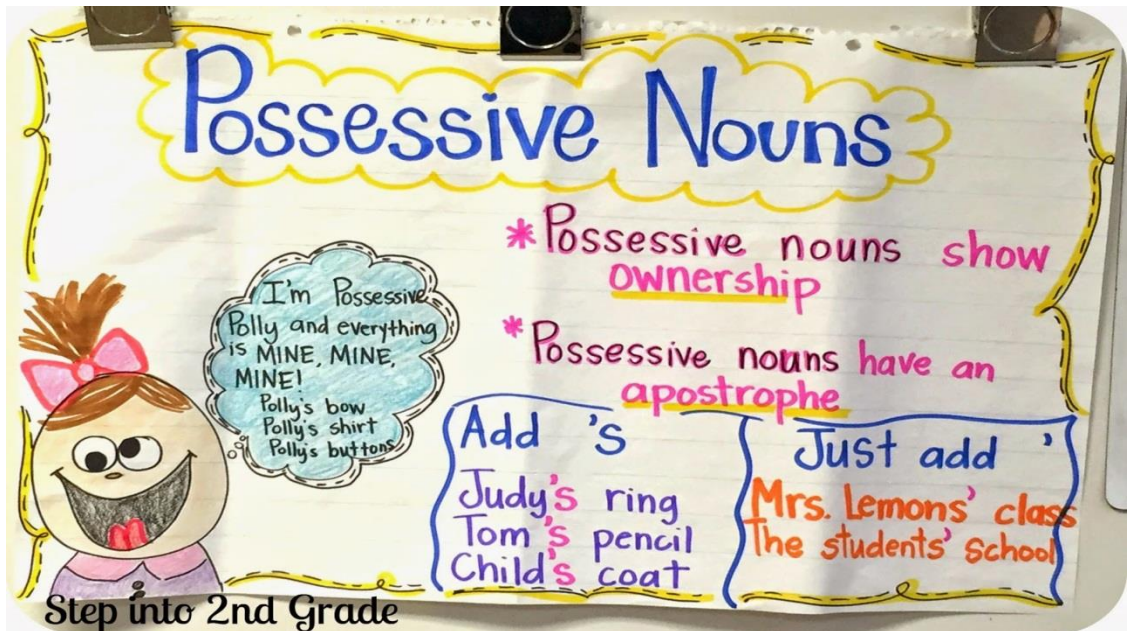 Possessive Nouns
*Possessive nouns show
ownership
*Possessive nouns have an
apostrophe
I'm Possessive
Polly and everything
is MINE, MINE,
MINE!
Polly's bow
Polly's shirt
Polly's buttons
Add 's
Judy's ring
Tom's pencil
Child's coat
Just add '
Mrs. Lemons' class
The students' school
Step into 2nd Grade